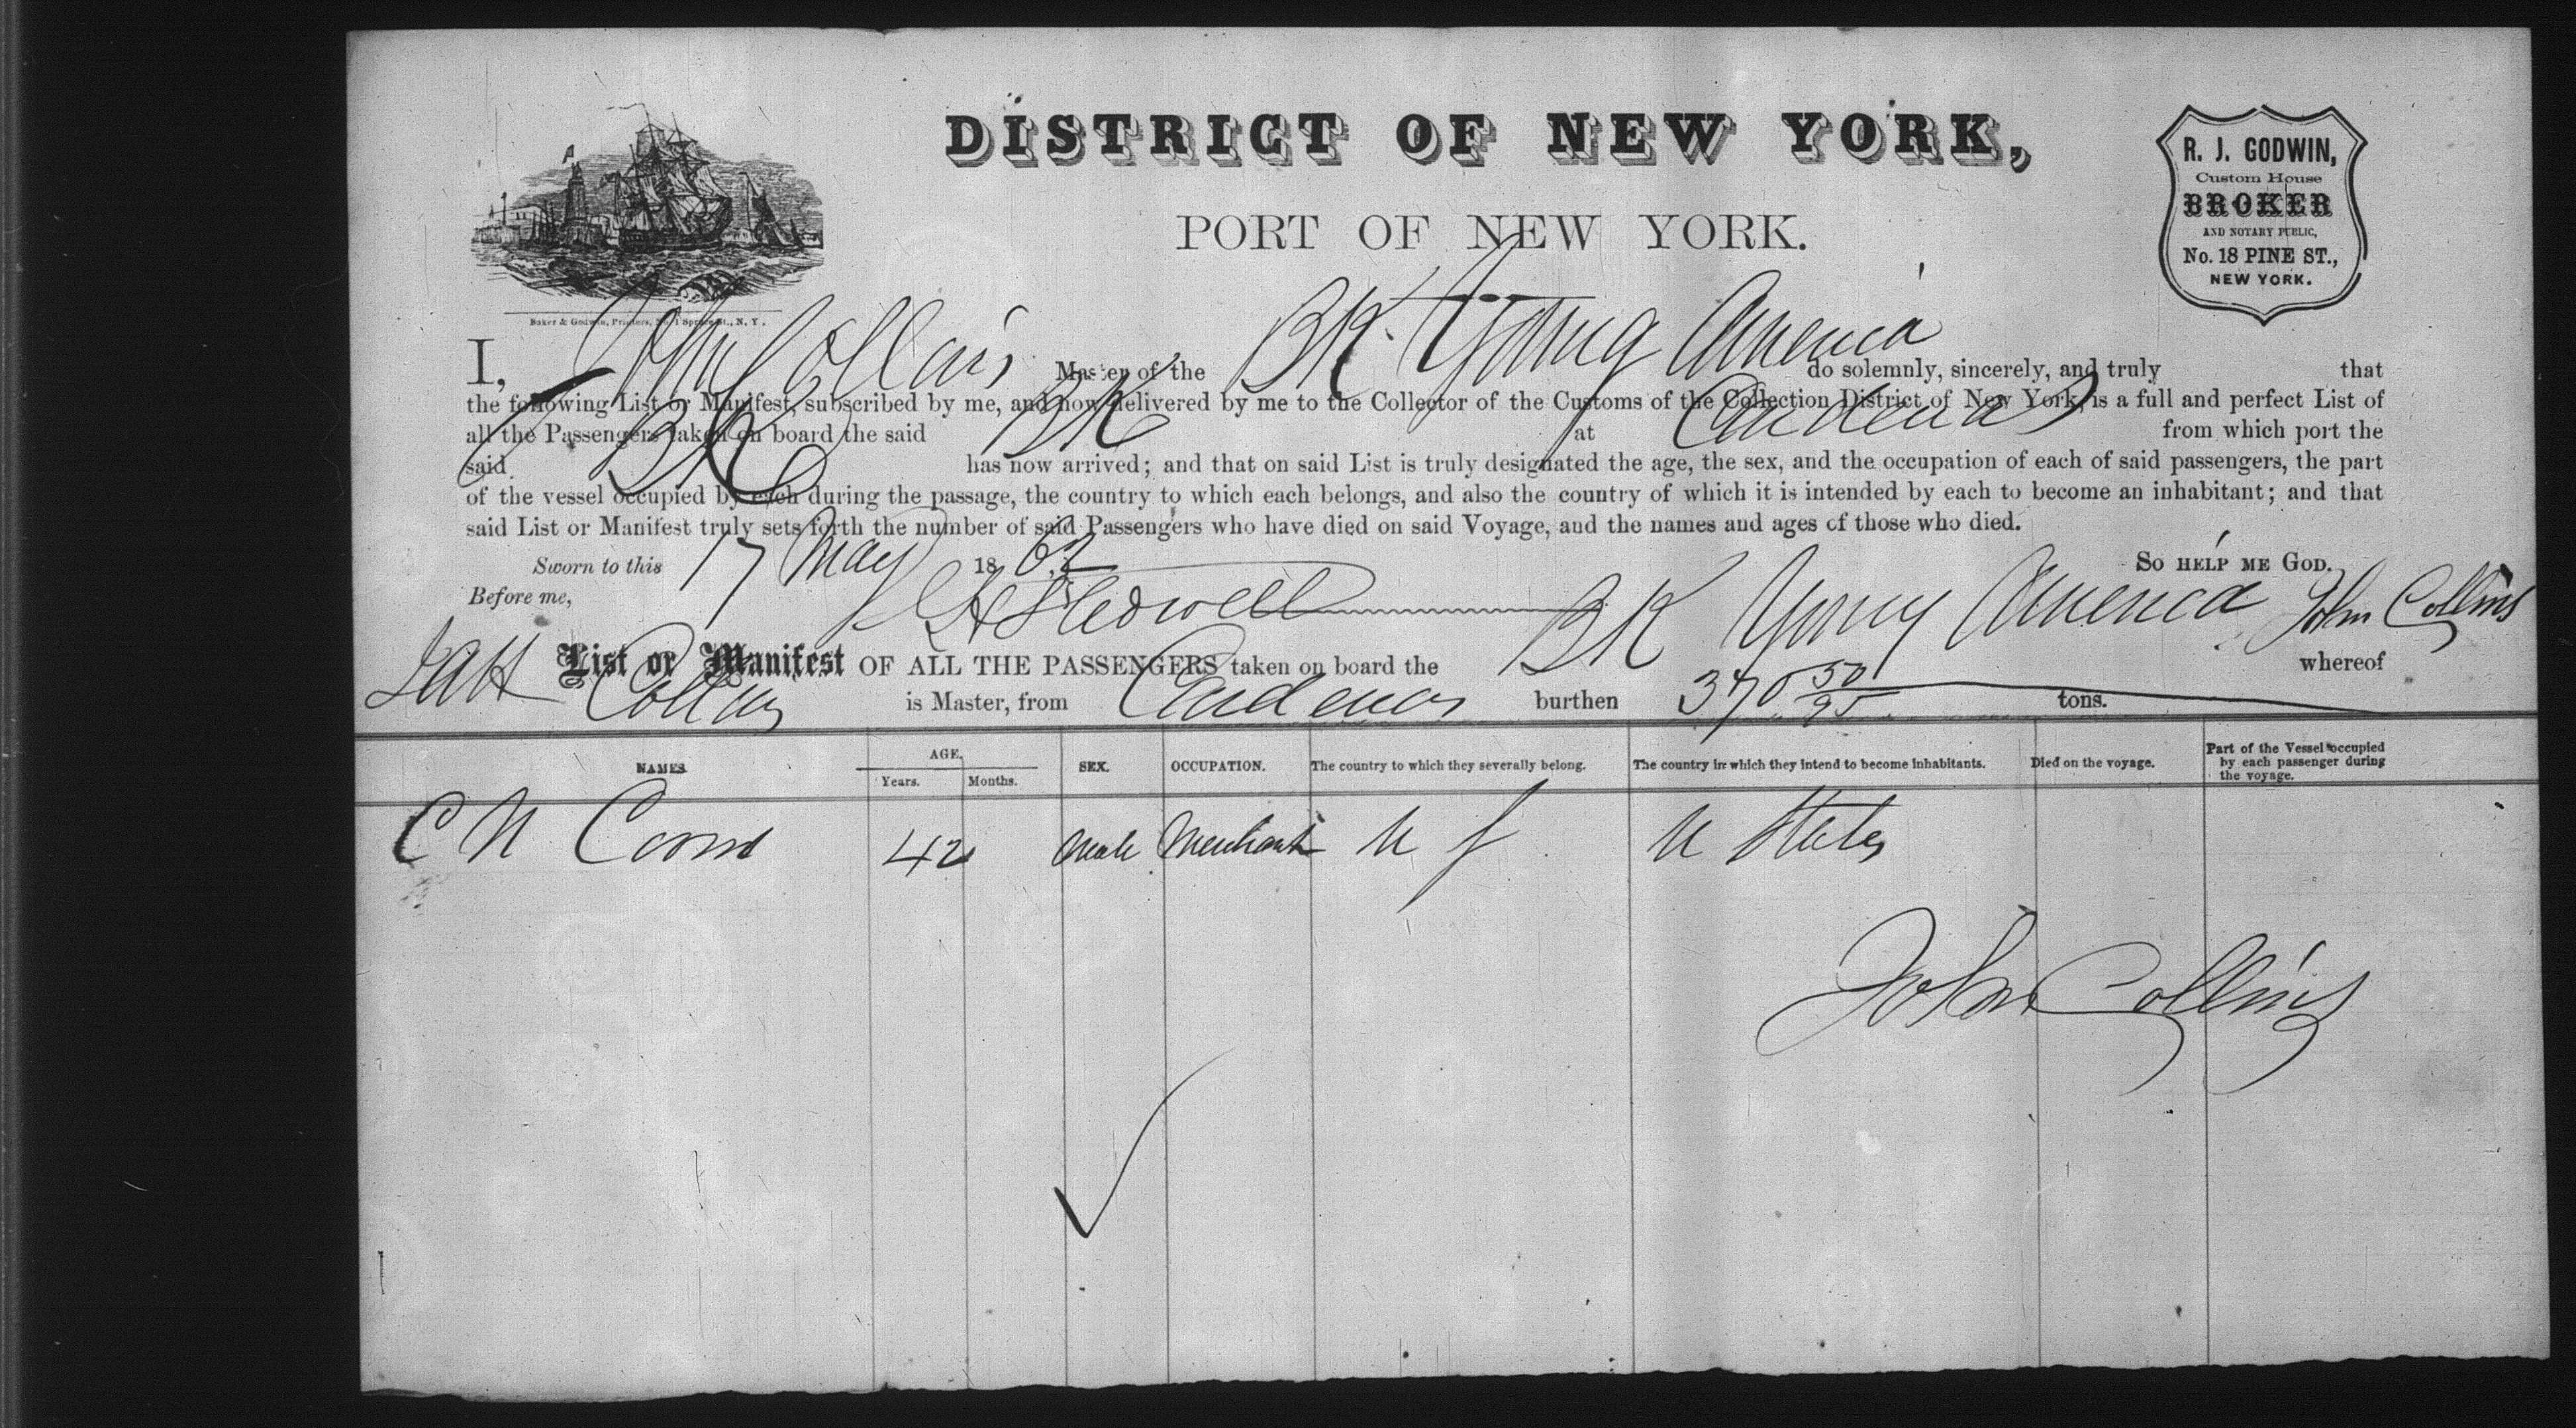 DISTRICT OF NEW YORK,
PORT OF NEW YORK.
R. J. GODWIN,
Custom House
BROKER
AND NOTARY PUBLIC,
No. 18 PINE ST.,
NEW YORK.
Baker & Godwin, Printers, No. 1 Spruce St., N. Y.
I, John Collins Master of the BK Young America do solemnly, sincerely, and truly that
the following List or Manifest, subscribed by me, and now delivered by me to the Collector of the Customs of the Collection District of New York, is a full and perfect List of
all the Passengers taken on board the said BK at Cardenas from which port the
said BK has now arrived; and that on said List is truly designated the age, the sex, and the occupation of each of said passengers, the part
of the vessel occupied by each during the passage, the country to which each belongs, and also the country of which it is intended by each to become an inhabitant; and that
said List or Manifest truly sets forth the number of said Passengers who have died on said Voyage, and the names and ages of those who died.
Sworn to this 17 May 1862 So HELP ME GOD.
Before me, John Collins
List or Manifest OF ALL THE PASSENGERS taken on board the BK Young America whereof
Collins is Master, from Cardenas burthen 370 50/95 tons.
NAMES
AGE.
Years. Months.
SEX.
OCCUPATION.
The country to which they severally belong.
The country in which they intend to become inhabitants.
Died on the voyage.
Part of the Vessel occupied by each passenger during the voyage.
C N 42 Male Merchant U S U States
John Collins